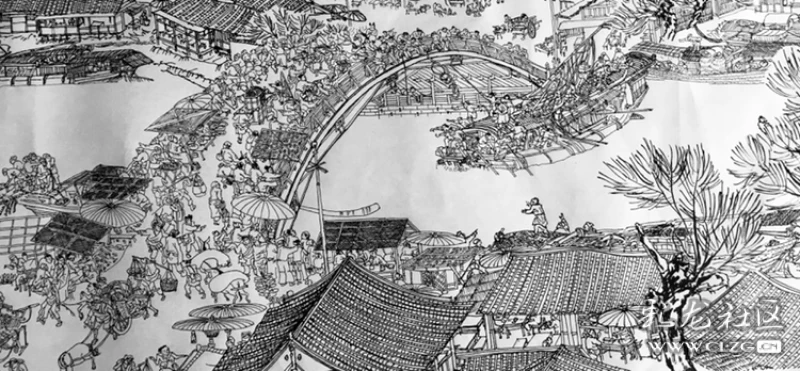 和龙社区
WWW.CLZG.CN